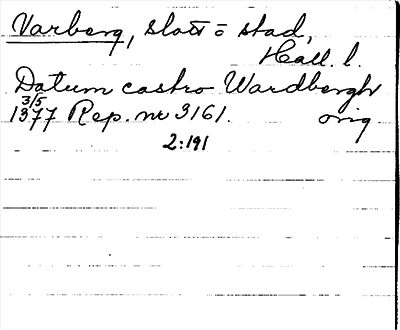 Varberg, slott o stad,
Hall. l.
Datum castro Wardbergh
3/5
1377 Rep. nr 3161. orig
2:191